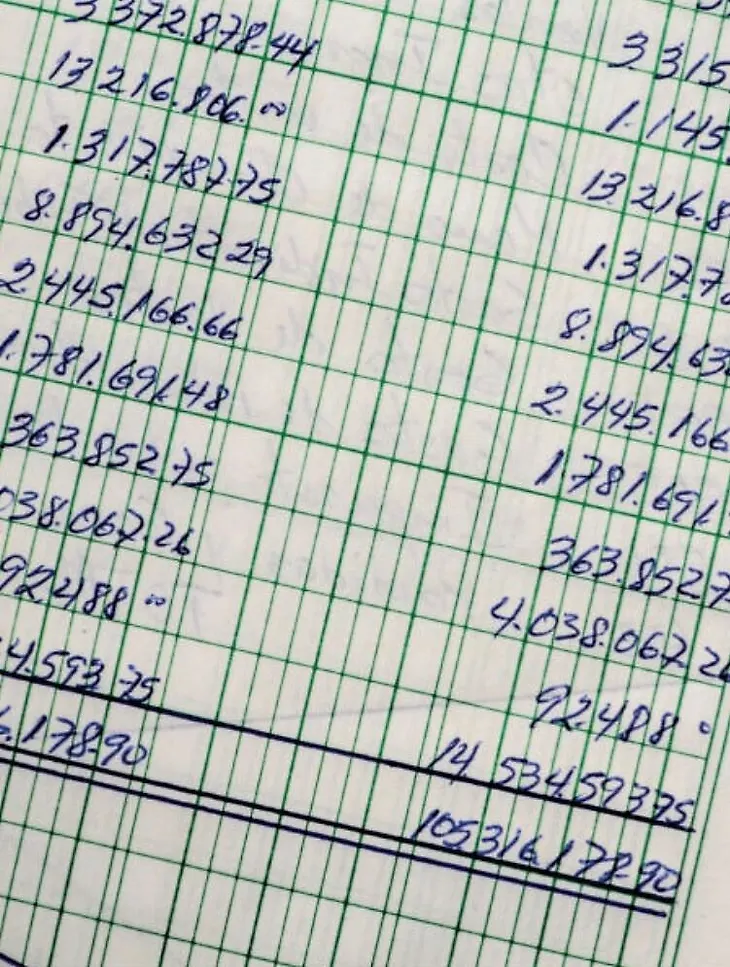 3372.878.44
3315
13216.806.00
1.145.
1.317.787.75
13.216.8
8.894.632 29
1.317.7
2.445.166.66
8.894.63
1.781.691.48
2.445.166
363.852.75
1.781.691.
038.067.26
363.852 7
92488 00
4.038.067.26
4.593 75
92.488
6.178.90
14.534.593 75
105316.178.90